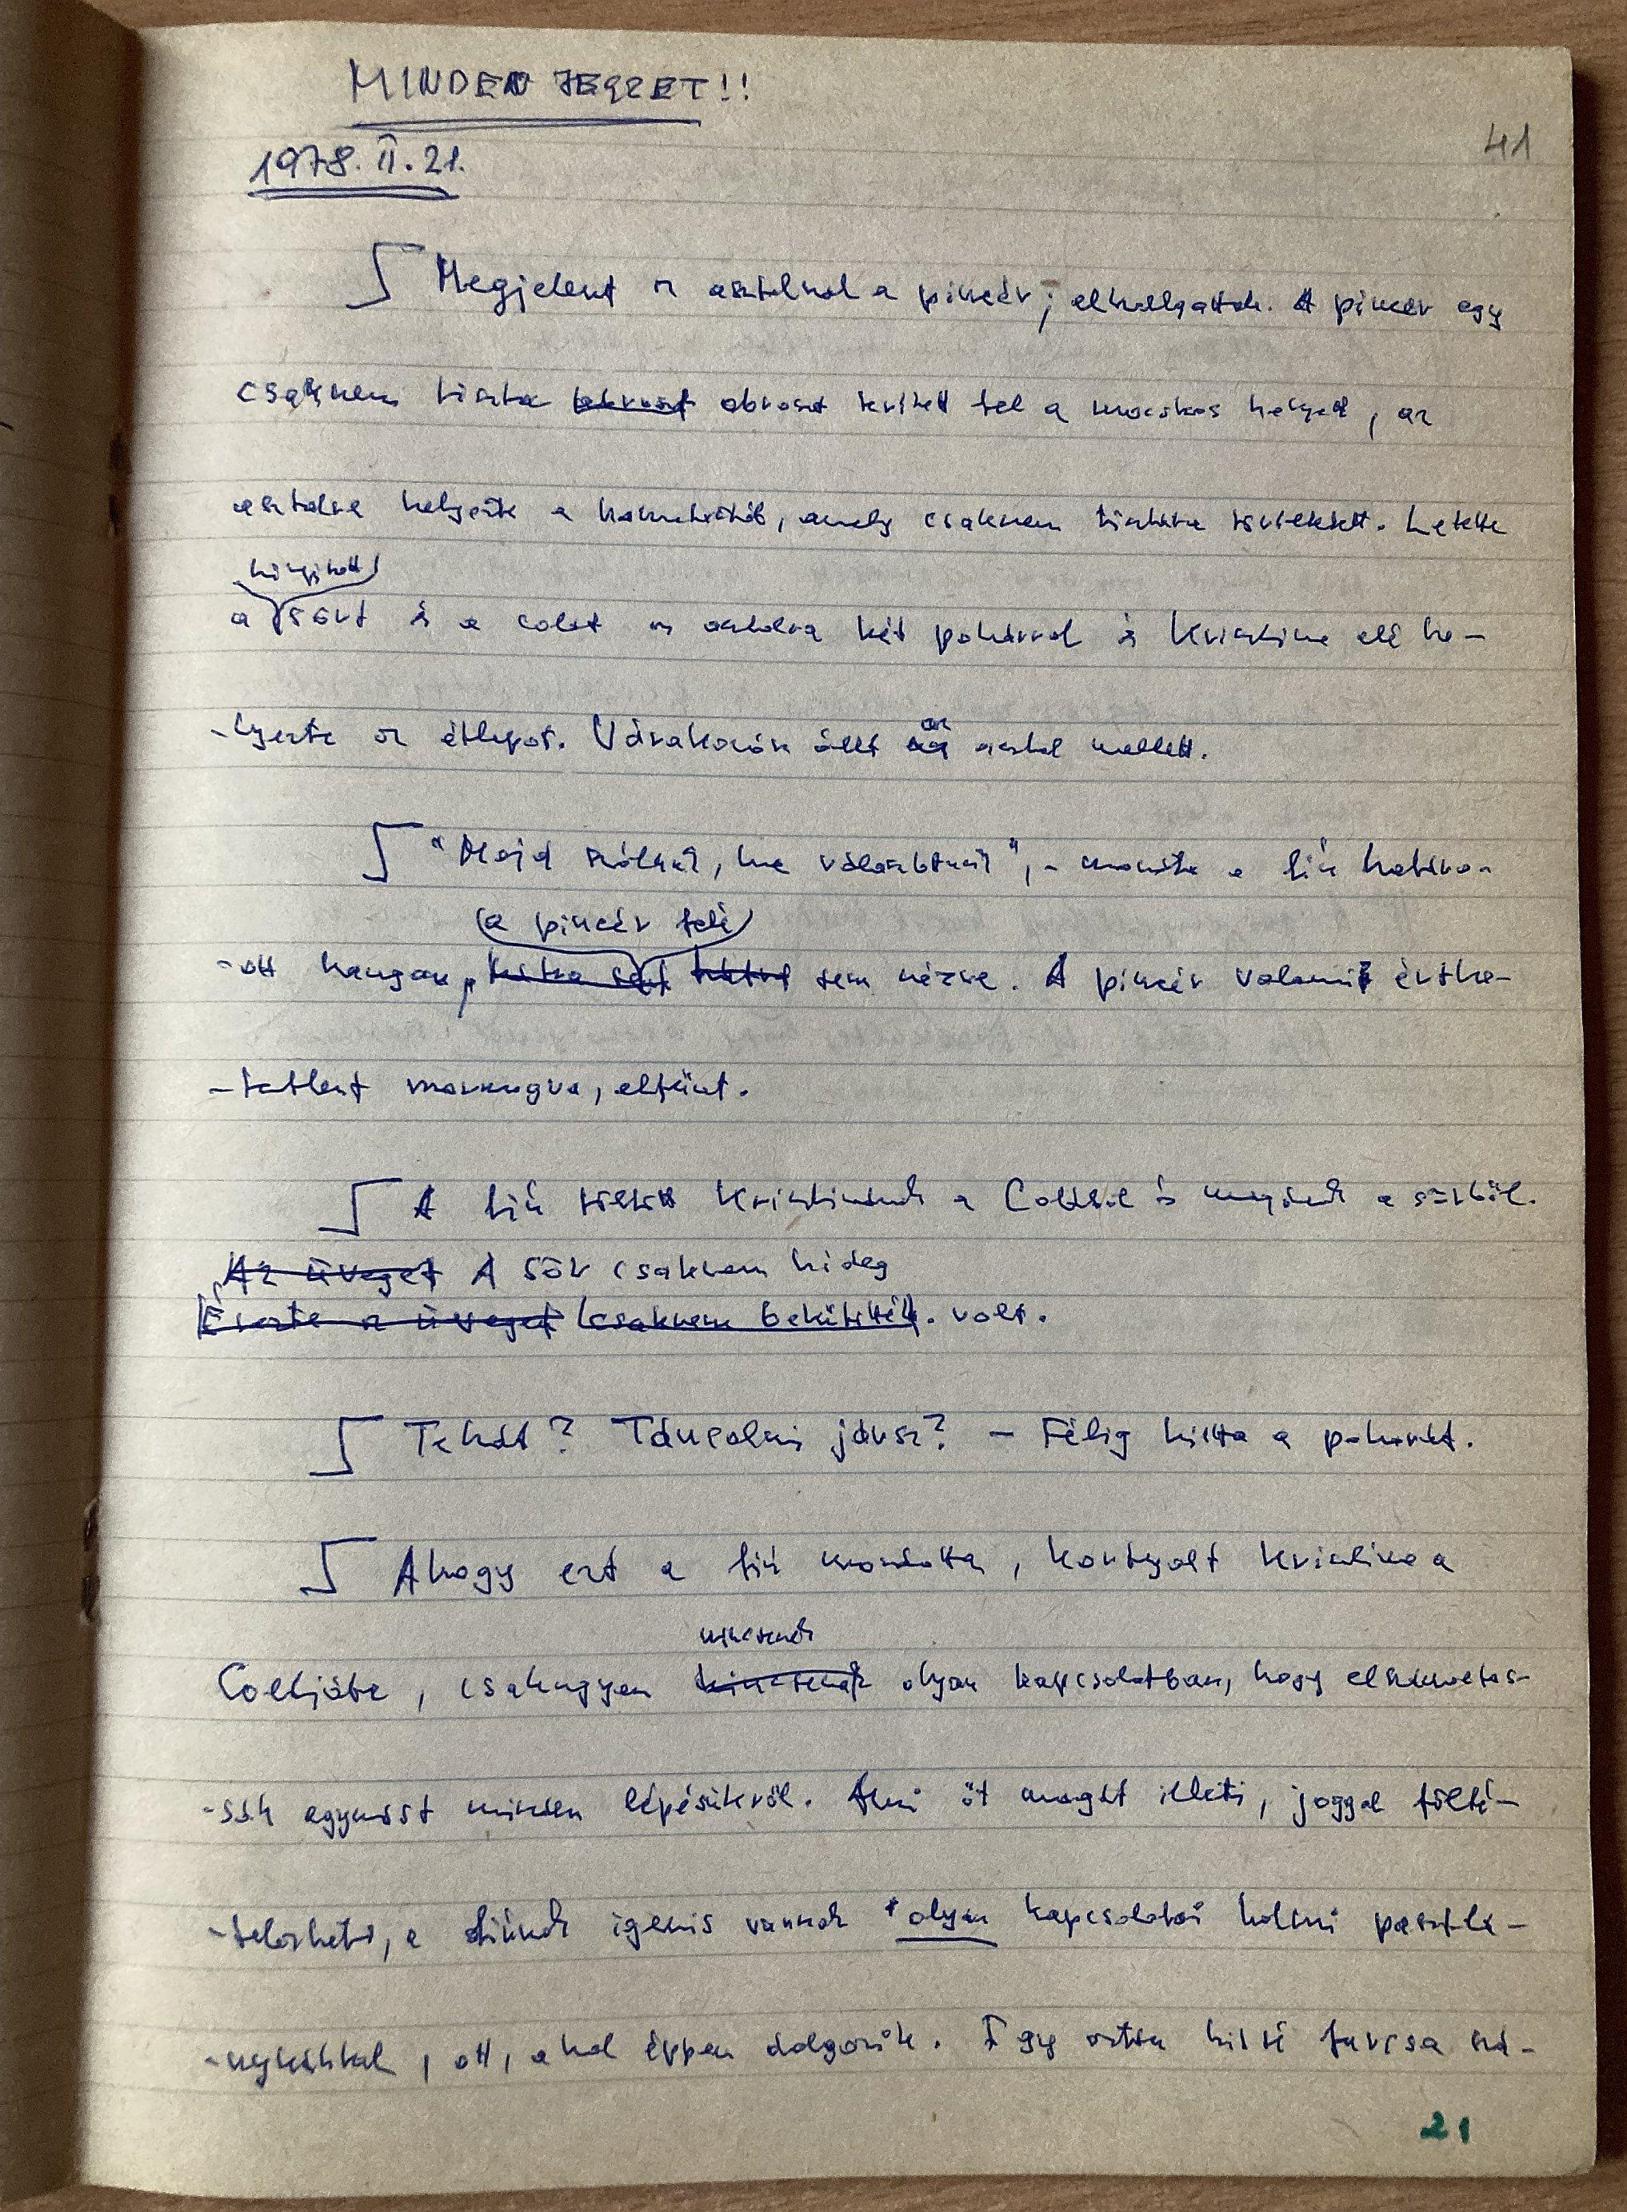 MINDEN JEGYZET!!
41
1978. II. 21.
Megjelent az asztalnál a pincér; elhallgattak. A pincér egy
csaknem tiszta abroszt abroszt terített fel a mocskos helyett, az
asztalra helyezte a hamutartót, amely csaknem tisztára töröltetett. Letette
a sört és a colát az asztalra két pohárral és Krisztina elé he-
-lyezte az étlapot. Várakozón állt az asztal mellett.
"Majd szólunk, ha választunk", - mondta a fiú határo-
(a pincér felé)
-ott hangon, sem nézve. A pincér valami érthe-
-tetlent mormogva, eltűnt.
A fiú töltött Krisztinának a Colából és magának a sörből.
Az üveget A sör csaknem hideg
Érezte az üveget (csaknem behűtötték). volt.
Tehát? Táncolni jársz? - Félig kiitta a poharát.
Ahogy ezt a fiú mondotta, kortyolt Krisztina a
nincsenek
Collájába, csakugyan nincsenek olyan kapcsolatban, hogy elszámoltas-
-sák egymást minden lépésükről. Ami őt magát illeti, joggal félté-
-telezheti, a fiúnak igenis vannak olyan kapcsolatai holmi pesztle-
, ott, ahol éppen dolgozik. Így aztán kissé furcsa szá-
21